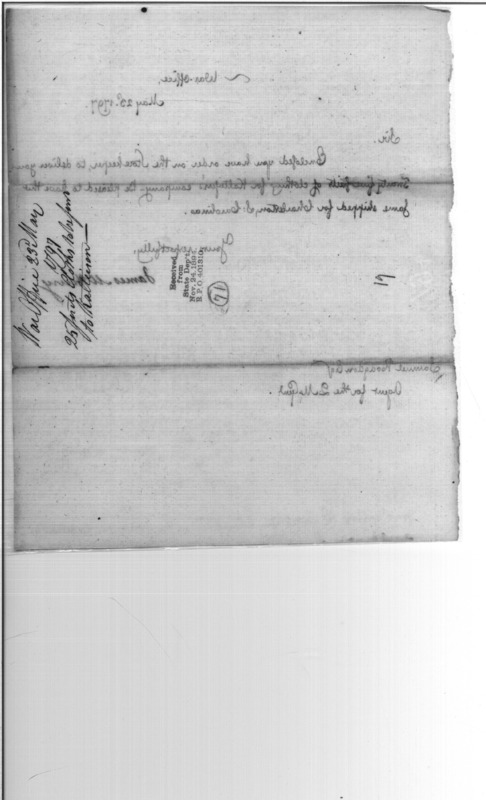 War Office,
May 23d 1797.
Sir,
Enclosed you have order on the Store keeper to deliver you
Twenty five suits of clothing for Kalteisen's company be pleased to have the
same shipped for Charleston, S. Carolina.
Yours respectfully,
James
Samuel Hodgdon Esqr
War Office 23d May
1797
25 suits
to Kalteisen
Received
from
State Dep't
Nov. 24 189
R.P.O. 401310
17
17